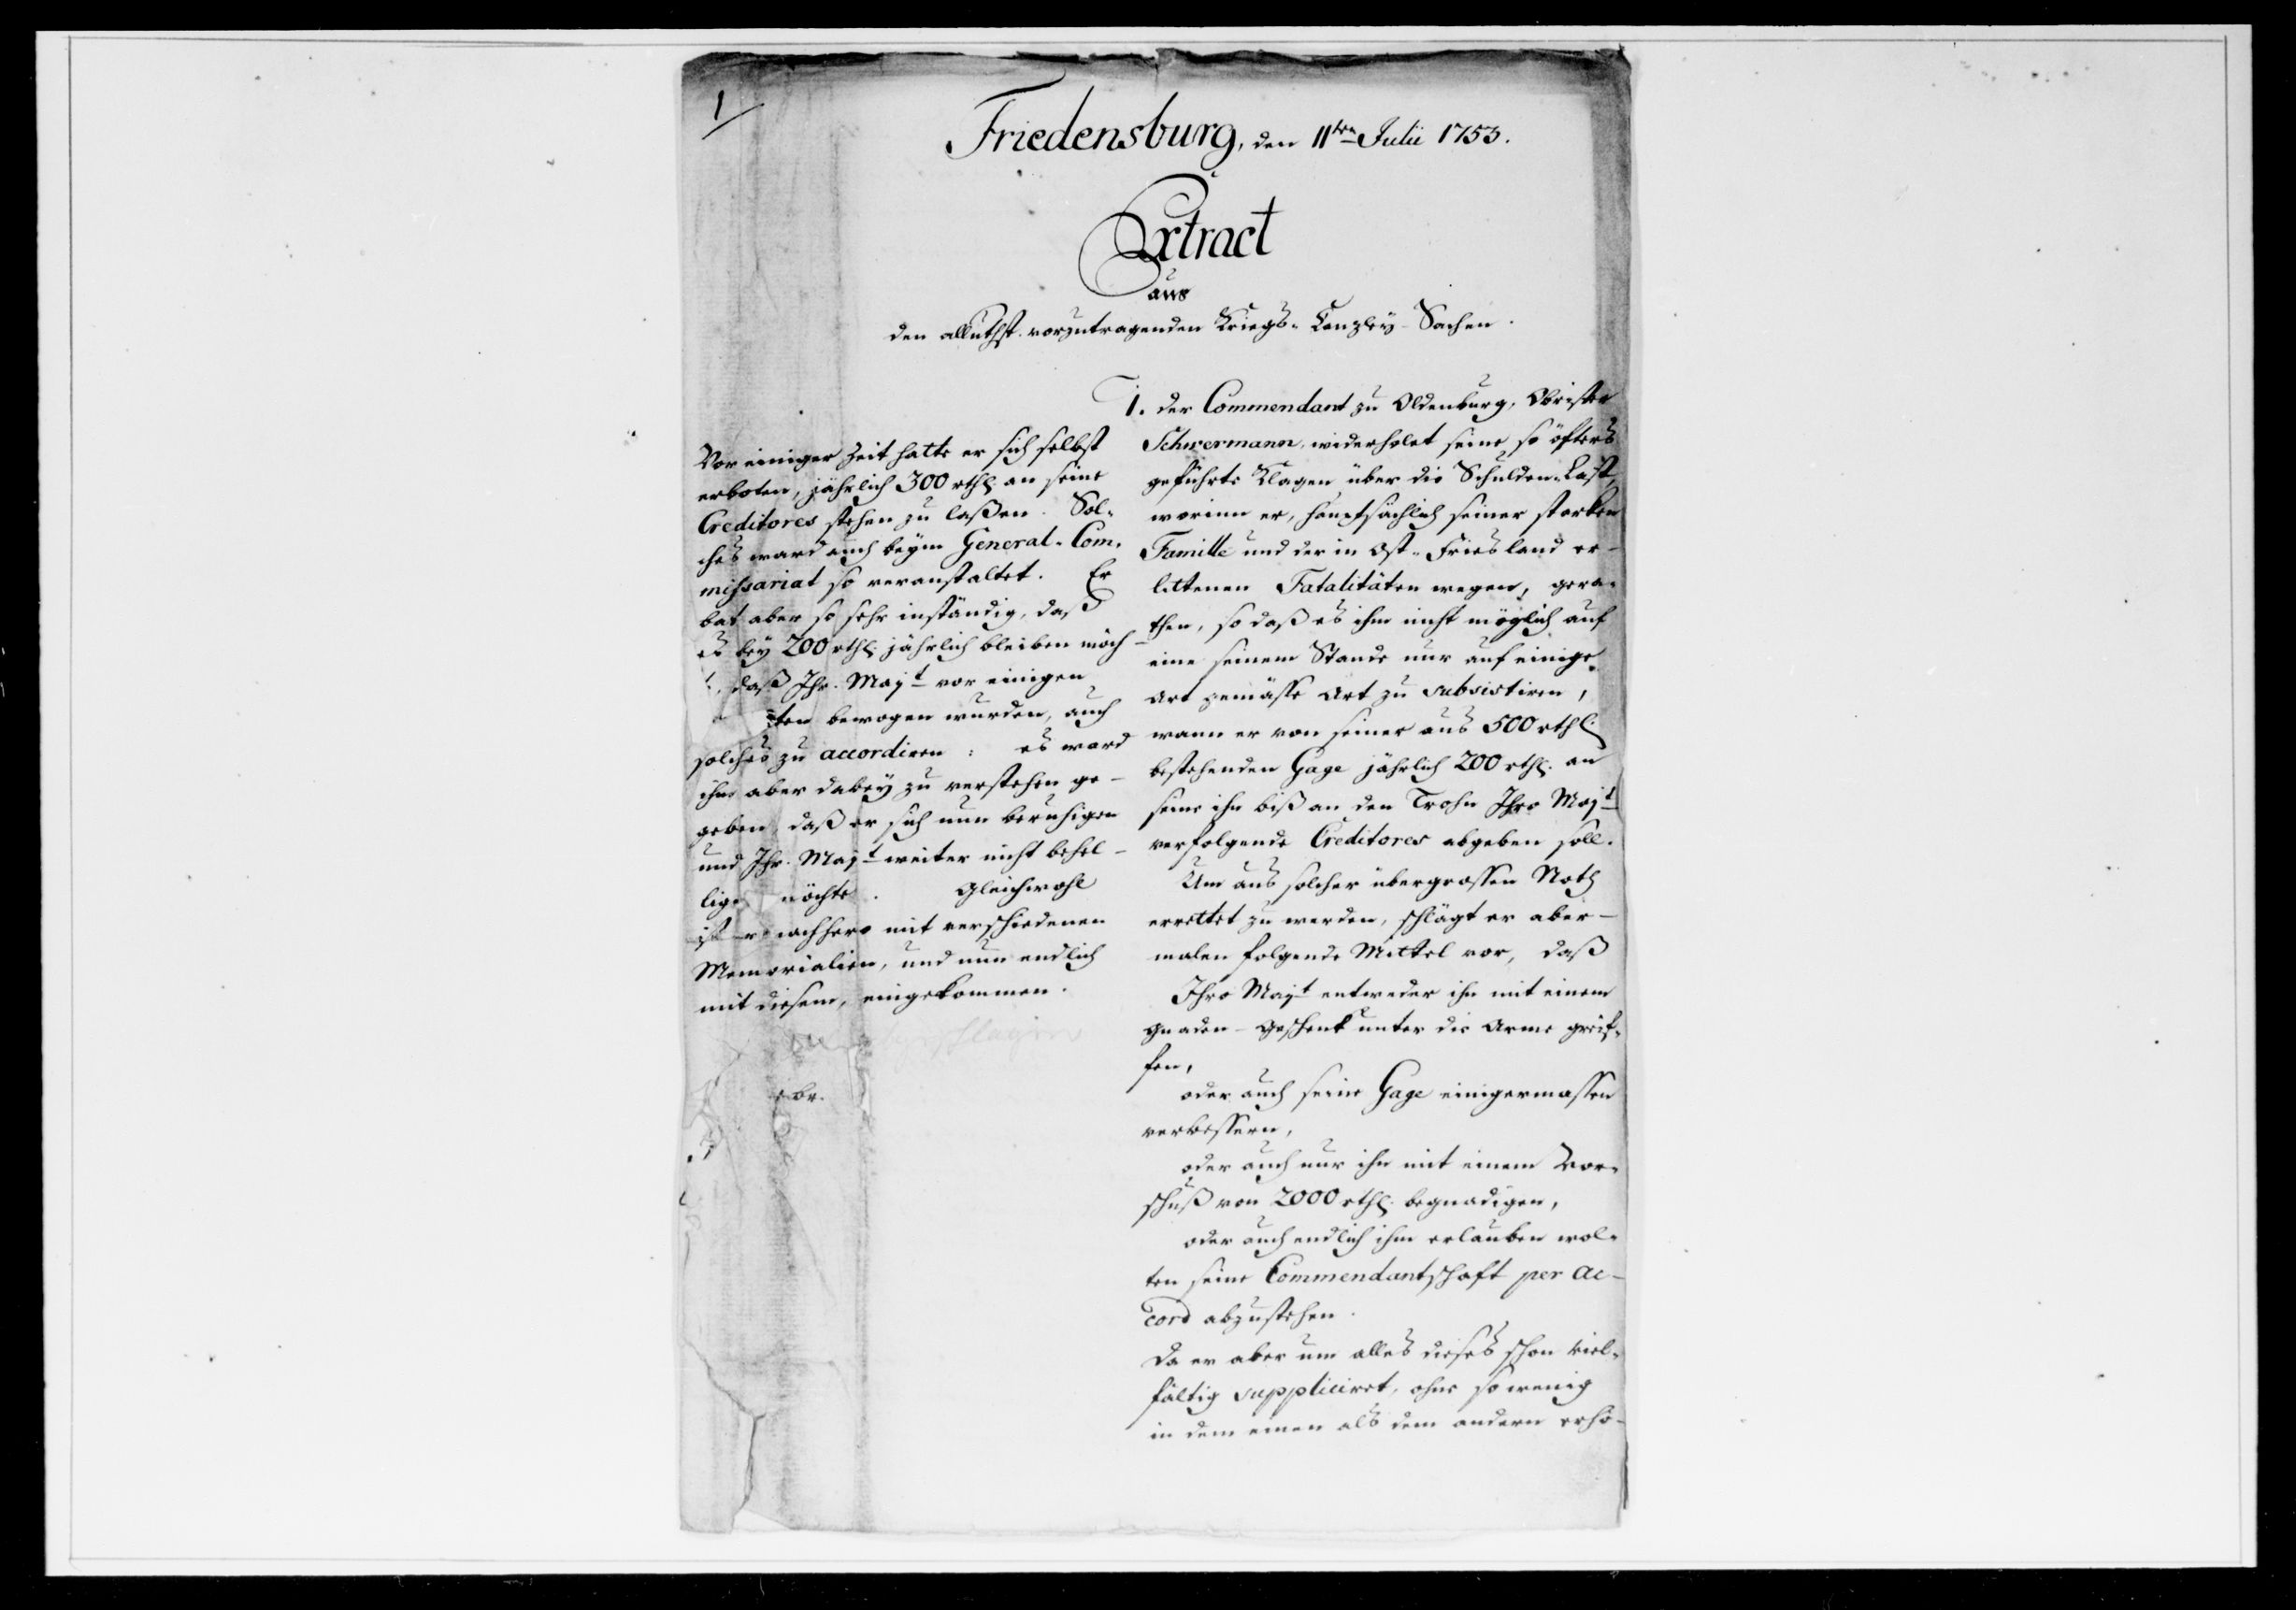 1
Friedensburg, den 11ten Julii 1753.
Extract
aus
den alluthst. vorzutragenden Kriegs-Canzley-Sachen.
1. der Commendant zu Oldenburg, Obrister
Schwermann, wiederholet seine so öfters
geführte Klagen über die Schulden-Last,
worinn er, hauptsächlich seiner starken
Famille und der in Ost-Friesland er-
littenen Fatalitäten wegen, gera-
then, so daß es ihm nicht möglich auf
eine seinem Stande nur auf einige
Art gemässe Art zu subsistiren,
wann er von seiner aus 500 rthl.
bestehenden Gage jährlich 200 rthl. an
seine ihn biß an den Trohn Ihro Majt
verfolgende Creditores abgeben soll.
Um aus solcher übergrossen Noth
errettet zu werden, schlägt er aber-
malen folgende Mittel vor, daß
Ihro Majt entweder ihn mit einem
Gnaden-Geschenk unter die Arme greif-
fen,
oder auch seine Gage einigermassen
verbessern,
oder auch nur ihn mit einem Vor-
schuß von 2000 rthl. begnadigen,
oder auch endlich ihm erlauben wol-
ten seine Commendantschaft per Ac-
cord abzustehen.
Da er aber um alles dieses schon viel-
fältig suppliciret, ohne so wenig
in dem einen als dem andern erhö-
Vor einiger Zeit hatte er sich selbst
erboten, jährlich 300 rthl. an seine
Creditores stehen zu laßen. Sol-
ches ward auch beym General-Com-
missariat so veranstaltet. Er
bat aber so sehr inständig, daß
es bey 200 rthl. jährlich bleiben möch-
daß Ihr. Majt vor einigen
bewogen wurden, auch
solches zu accordiren: es ward
ihm aber dabey zu verstehen ge-
geben, daß er sich nun beruhigen
und Ihr. Majt weiter nicht behel-
ligen möchte. Gleichwohl
ist er nachhero mit verschiedenen
Memorialien, und nun endlich
mit diesem, eingekommen.